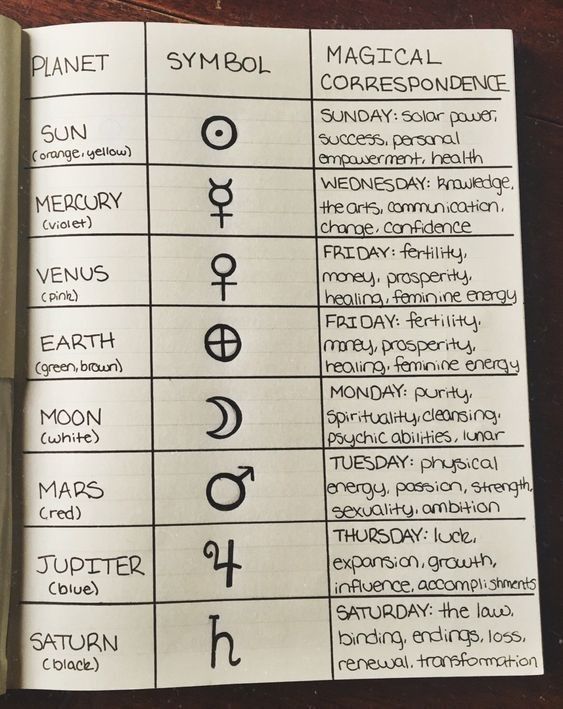 PLANET
SYMBOL
MAGICAL
CORRESPONDENCE
SUN
(orange, yellow)
☉
SUNDAY: solar power,
success, personal
empowerment, health
MERCURY
(violet)
☿
WEDNESDAY: knowledge,
the arts, communication,
change, confidence
VENUS
(pink)
♀
FRIDAY: fertility,
money, prosperity,
healing, feminine energy
EARTH
(green, brown)
🜨
FRIDAY: fertility,
money, prosperity,
healing, feminine energy
MOON
(white)
☽
MONDAY: purity,
spirituality, cleansing,
psychic abilities, lunar
MARS
(red)
♂
TUESDAY: physical
energy, passion, strength,
sexuality, ambition
JUPITER
(blue)
♃
THURSDAY: luck,
expansion, growth,
influence, accomplishments
SATURN
(black)
♄
SATURDAY: the law,
binding, endings, loss,
renewal, transformation